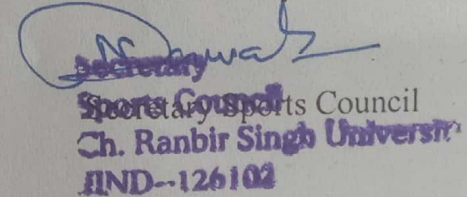 Secretary
Sports Council
Secretary Sports Council
Ch. Ranbir Singh University
JIND--126102